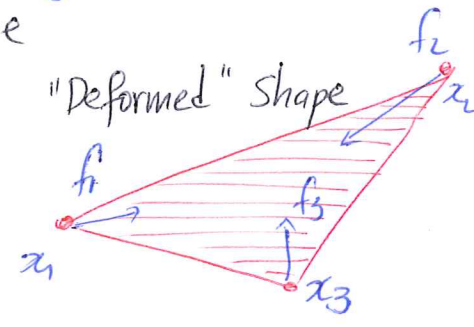 e
f2
"Deformed" Shape
x2
f1
f3
x1
x3